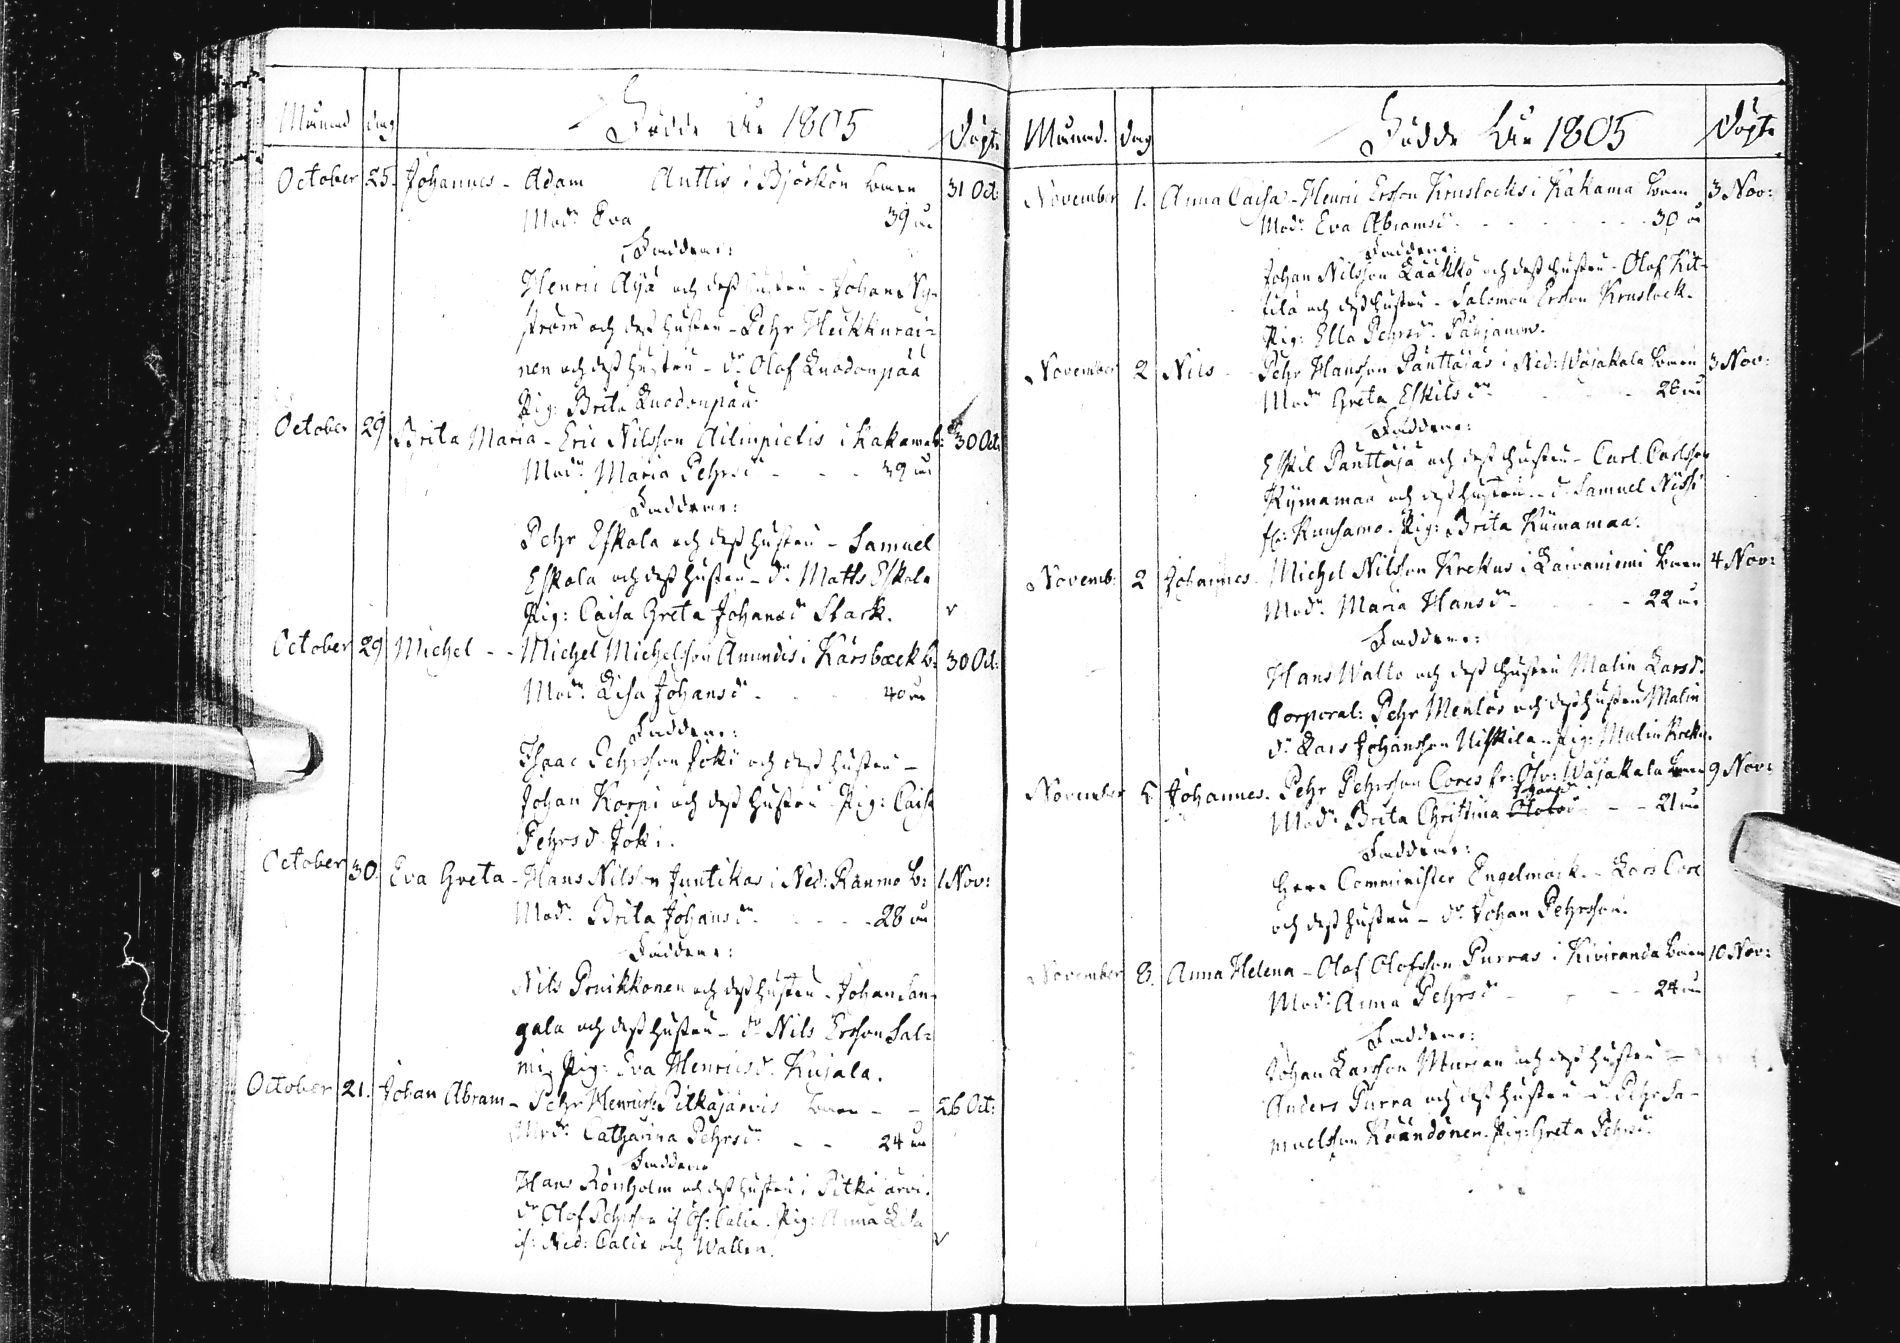 Månad dag Födde År 1805 Döpte
October 25. Johannes - Adam Anttis i Björkön barn 31 Oct:
Modr: Eva 39 år
Faddrar:
Henric Äijä och dess hustru - Johan Ny-
ström och dess hustru - Pehr Heikkurai=
nen och dess hustru - dr: Olof Luodonpää
Pig: Brita Luodonpää.
October 29 Brita Maria - Eric Nilsson Ailinpietis i Kakama b: 30 Oct:
Modr: Maria Pehrsdr - - - 39 år
Faddrar:
Pehr Eskola och dess hustru - Samuel
Eskola och dess hustru - dr: Matts Eskola
Pig: Caisa Greta Johansdr Stark.
October 29 Michel - - Michel Michelsson Amundis i Karsbäck b: 30 Oct:
Modr: Lisa Johansdr - - - 40 år
Faddrar:
Isaac Pehrsson Joki och dess hustru -
Johan Korpi och dess hustru - Pig: Caisa
Pehrsdr Joki.
October 30. Eva Greta - Hans Nilsson Juntikas i Ned: Raumo b: 1 Nov:
Modr: Brita Johansdr - - - 28 år
Faddrar:
Nils Pruikkonen och dess hustru - Johan San-
gala och dess hustru - dr Nils Ersson Sal=
mi - Pig: Eva Henricsdr Kujala.
October 21. Johan Abram - Pehr Henricss: Pitkäjärvis barn - - 26 Oct:
Modr: Catharina Pehrsdr - - 24 år
Faddrar
Hans Rönholm och dess hustru i Pitkäjärvi.
dr Olof Pehrsson if: Öf: Calix. Pig: Anna Lisa
if: Ned: Calix och Wallen.
Månad. dag Födde År 1805 Döpte
November 1. Anna Caisa - Henric Ersson Kruslocks i Kakama barn 3 Nov:
Modr: Eva Abramsdr - - - 30 år
Faddrar:
Johan Nilsson Lääkkö och dess hustru - Olof Kit-
tilä och dess hustru - Salomon Ersson Kruslock.
Pig: Ella Pehrsdr
November 2 Nils - Pehr Hansson Panttajas i Ned: Wojakala barn 3 Nov:
Modr Greta Eskilsdr - - - 28 år
Faddrar:
Eskil Panttaja och dess hustru - Carl Carlsson
Kymamaa och dess hustru - dr Samuel
fr: Kuusamo. Pig: Brita Kümamaa.
Novemb: 2 Johannes. Michel Nilsson Krekus i Laivaniemi barn 4 Nov:
Modr. Maria Hansdr - - - 22 år
Faddrar:
Hans Wallo och dess hustru Malin Larsdr.
Corporal: Pehr Menlös och dess hustru Malin
dr: Lars Johansson Uiskila - Pig: Malin Kreku.
November 5 Johannes. Pehr Pehrsson Cores fr: Öfv: Wojakala barn 9 Nov:
Modr: Brita Christina Johansdr - - 21 år
Faddrar:
Herr Comminister Engelmark. - Lars Core
och dess hustru - dr Johan Pehrsson.
November 8. Anna Helena - Olof Olofsson Purras i Kiviranda barn 10 Nov:
Modr: Anna Pehrsdr - - - 24 år
Faddrar:
Johan Larsson Marjan och dess hustru -
Anders Purra och dess hustru - dr Pehr Sa-
muelsson. Pig: Greta Pehrsdr.